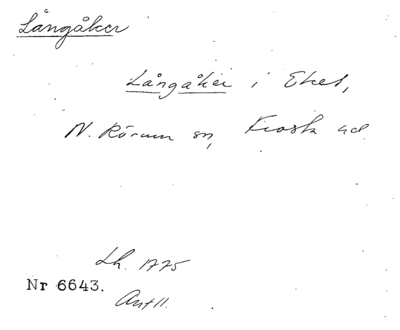 Långåker
Långåker i Ekel,
N. Rörum sn, Frosta hd.
Lh. 1775
Nr 6643.
Ant 11.